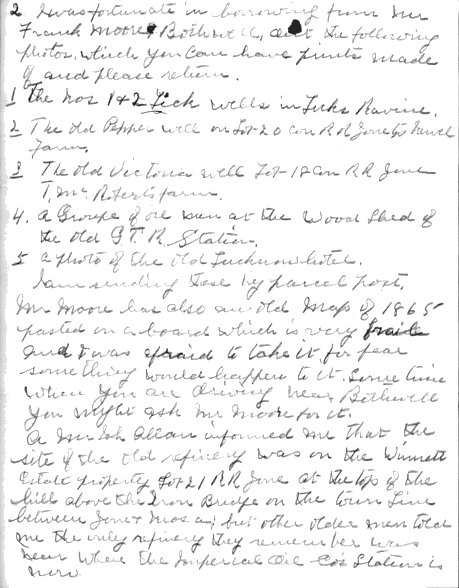 2 I was fortunate in borrowing from Mr
Frank Moore Bothwell, the following
photos, which you can have prints made
of and please return.
1 The Nos 1 & 2 Lick wells in Ravine.
2 The old Pepper well on Lot 20 Con R
Farm.
3 The old Victoria well Lot 18 Con RR Zone
T. Mc Robert's farm.
4. a Groupe of oil men at the Wood Shed of
the old G.T.R. Station.
5 a photo of the old Lucknow hotel.
I am sending these by parcel post,
Mr Moore has also an old map of 1865
pasted on a board which is very fraile
and I was afraid to take it for fear
something would happen to it. Some time
when you are driving near Bothwell
you might ask Mr Moore for it.
A Mr Allan informed me that the
site of the old refinery was on the Winnett
Estate property Lot 21 RR Zone at the top of the
hill above the Iron Bridge on the town Line
between Zone & Mosa, but other older men told
me the only refinery they remember was
near where the Imperial Oil Co's Station is
now